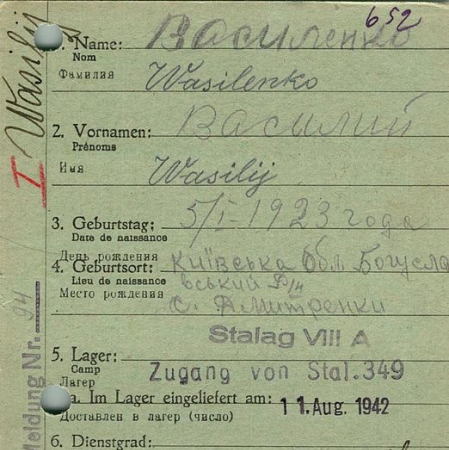 652
1. Name: Василенко
Nom
Фамилия Wasilenko
2. Vornamen: Василий
Prénoms
Имя Wasilij
3. Geburtstag: 5/I-1923 года
Date de naissance
День рождения
4. Geburtsort: Київська Обл. Богусла
Lieu de naissance вський Р/н
Место рождения с. Дмитренки
Stalag VIII A
5. Lager:
Camp Zugang von Stal.349
Лагер
a. Im Lager eingeliefert am: 11. Aug. 1942
Доставлен в лагер (число)
6. Dienstgrad:
I Wasilij
Meldung Nr. 94